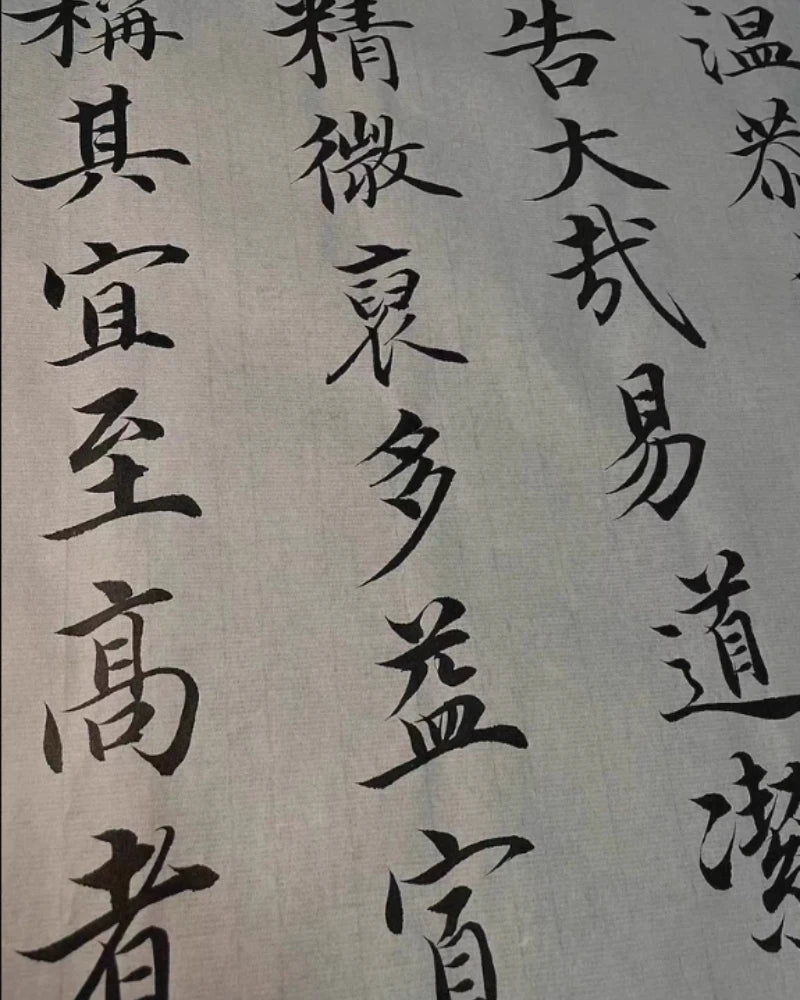 温恭
告大哉易道潔
精微裒多益寡
稱其宜至高者